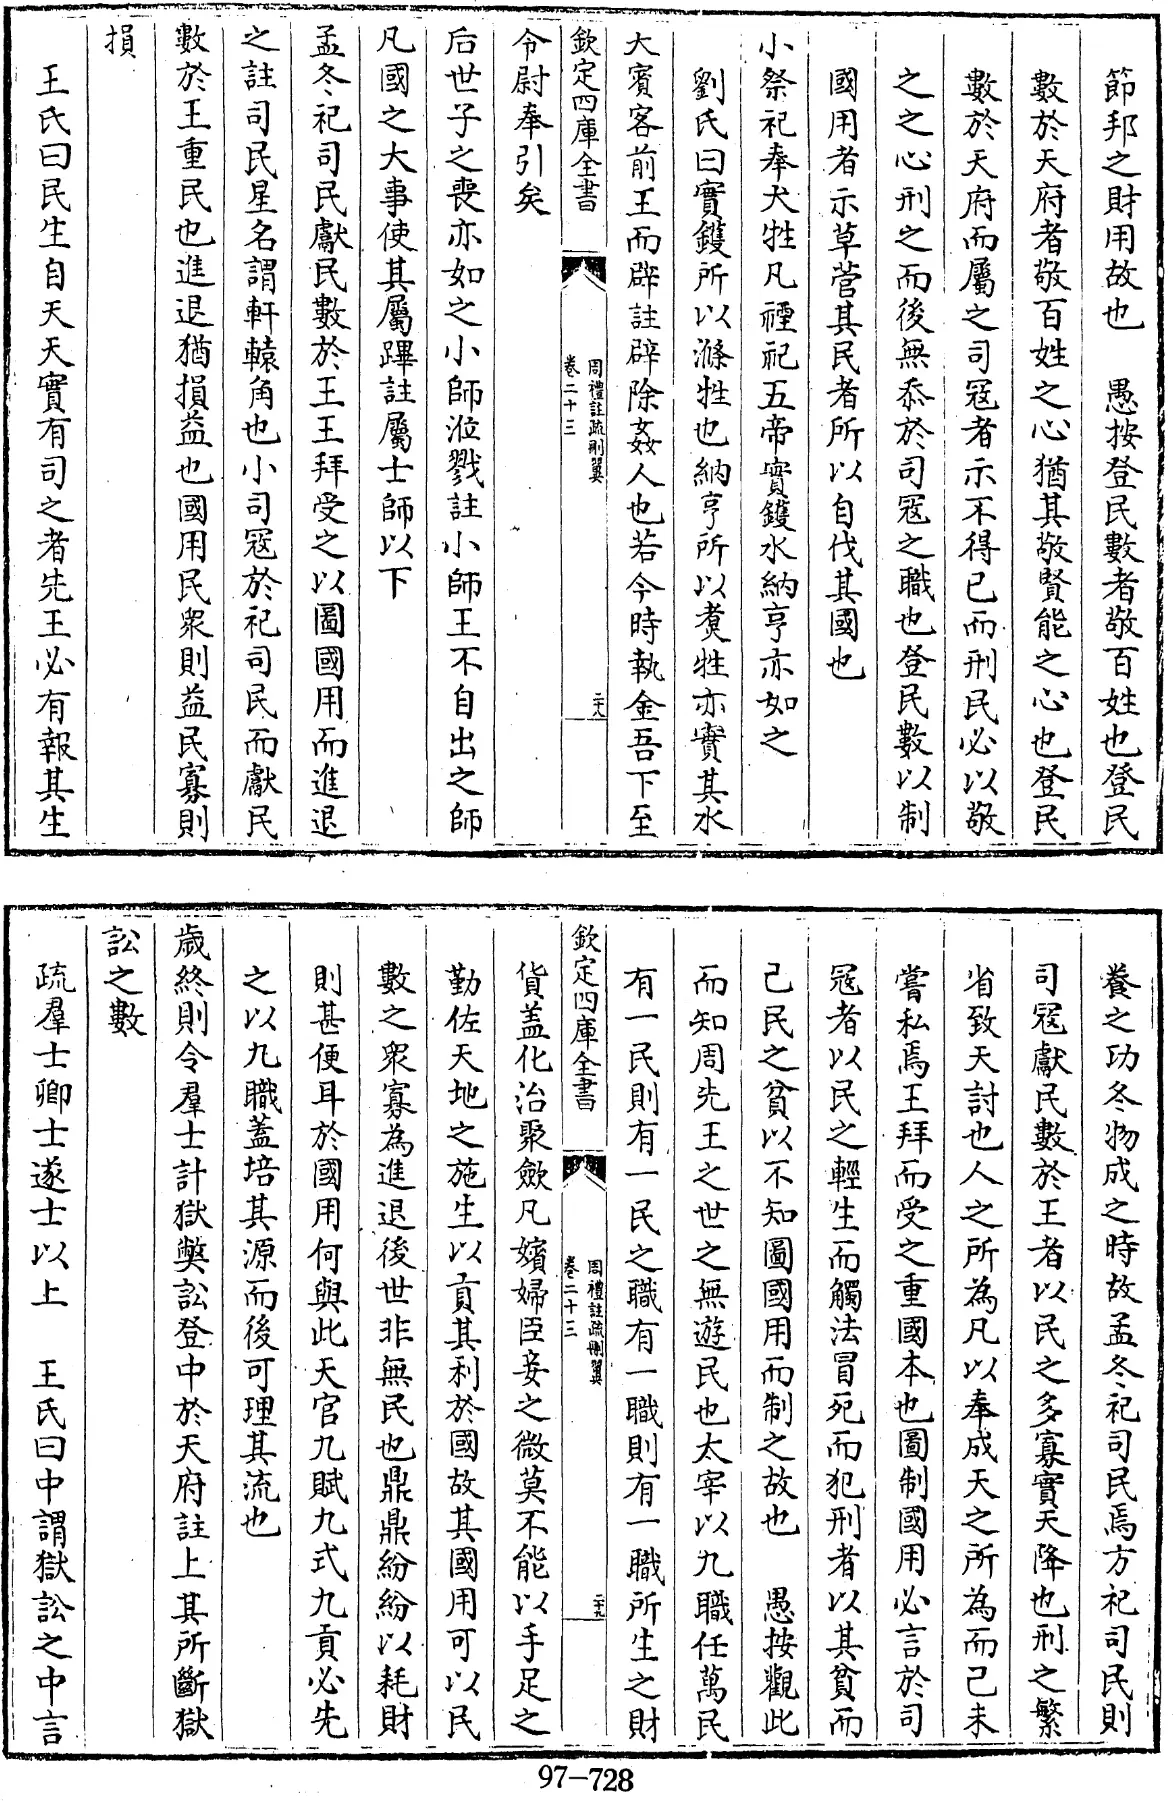 節邦之財用故也　愚按登民數者敬百姓也登民
數於天府者敬百姓之心猶其敬賢能之心也登民
數於天府而屬之司寇者示不得已而刑民必以敬
之之心刑之而後無忝於司寇之職也登民數以制
國用者示草菅其民者所以自伐其國也
小祭祀奉犬牲凡禋祀五帝實鑊水納亨亦如之
劉氏曰實鑊所以滌牲也納亨所以煑牲亦實其水
大賓客前王而辟註辟除姦人也若今時執金吾下至
欽定四庫全書
周禮註疏刪翼
卷二十三
二十八
令尉奉引矣
后世子之喪亦如之小師涖戮註小師王不自出之師
凡國之大事使其屬蹕註屬士師以下
孟冬祀司民獻民數於王王拜受之以圖國用而進退
之註司民星名謂軒轅角也小司寇於祀司民而獻民
數於王重民也進退猶損益也國用民衆則益民寡則
損
王氏曰民生自天天實有司之者先王必有報其生
養之功冬物成之時故孟冬祀司民焉方祀司民則
司寇獻民數於王者以民之多寡實天降也刑之繁
省致天討也人之所為凡以奉成天之所為而已未
嘗私焉王拜而受之重國本也圖制國用必言於司
寇者以民之輕生而觸法冒死而犯刑者以其貧而
己民之貧以不知圖國用而制之故也　愚按觀此
而知周先王之世之無遊民也太宰以九職任萬民
有一民則有一民之職有一職則有一職所生之財
欽定四庫全書
周禮註疏刪翼
卷二十三
二十九
貨盖化治聚斂凡嬪婦臣妾之微莫不能以手足之
勤佐天地之施生以貢其利於國故其國用可以民
數之衆寡為進退後世非無民也鼎鼎紛紛以耗財
則甚便耳於國用何與此天官九賦九式九貢必先
之以九職蓋培其源而後可理其流也
歲終則令羣士計獄弊訟登中於天府註上其所斷獄
訟之數
疏羣士卿士遂士以上　王氏曰中謂獄訟之中言
97-728